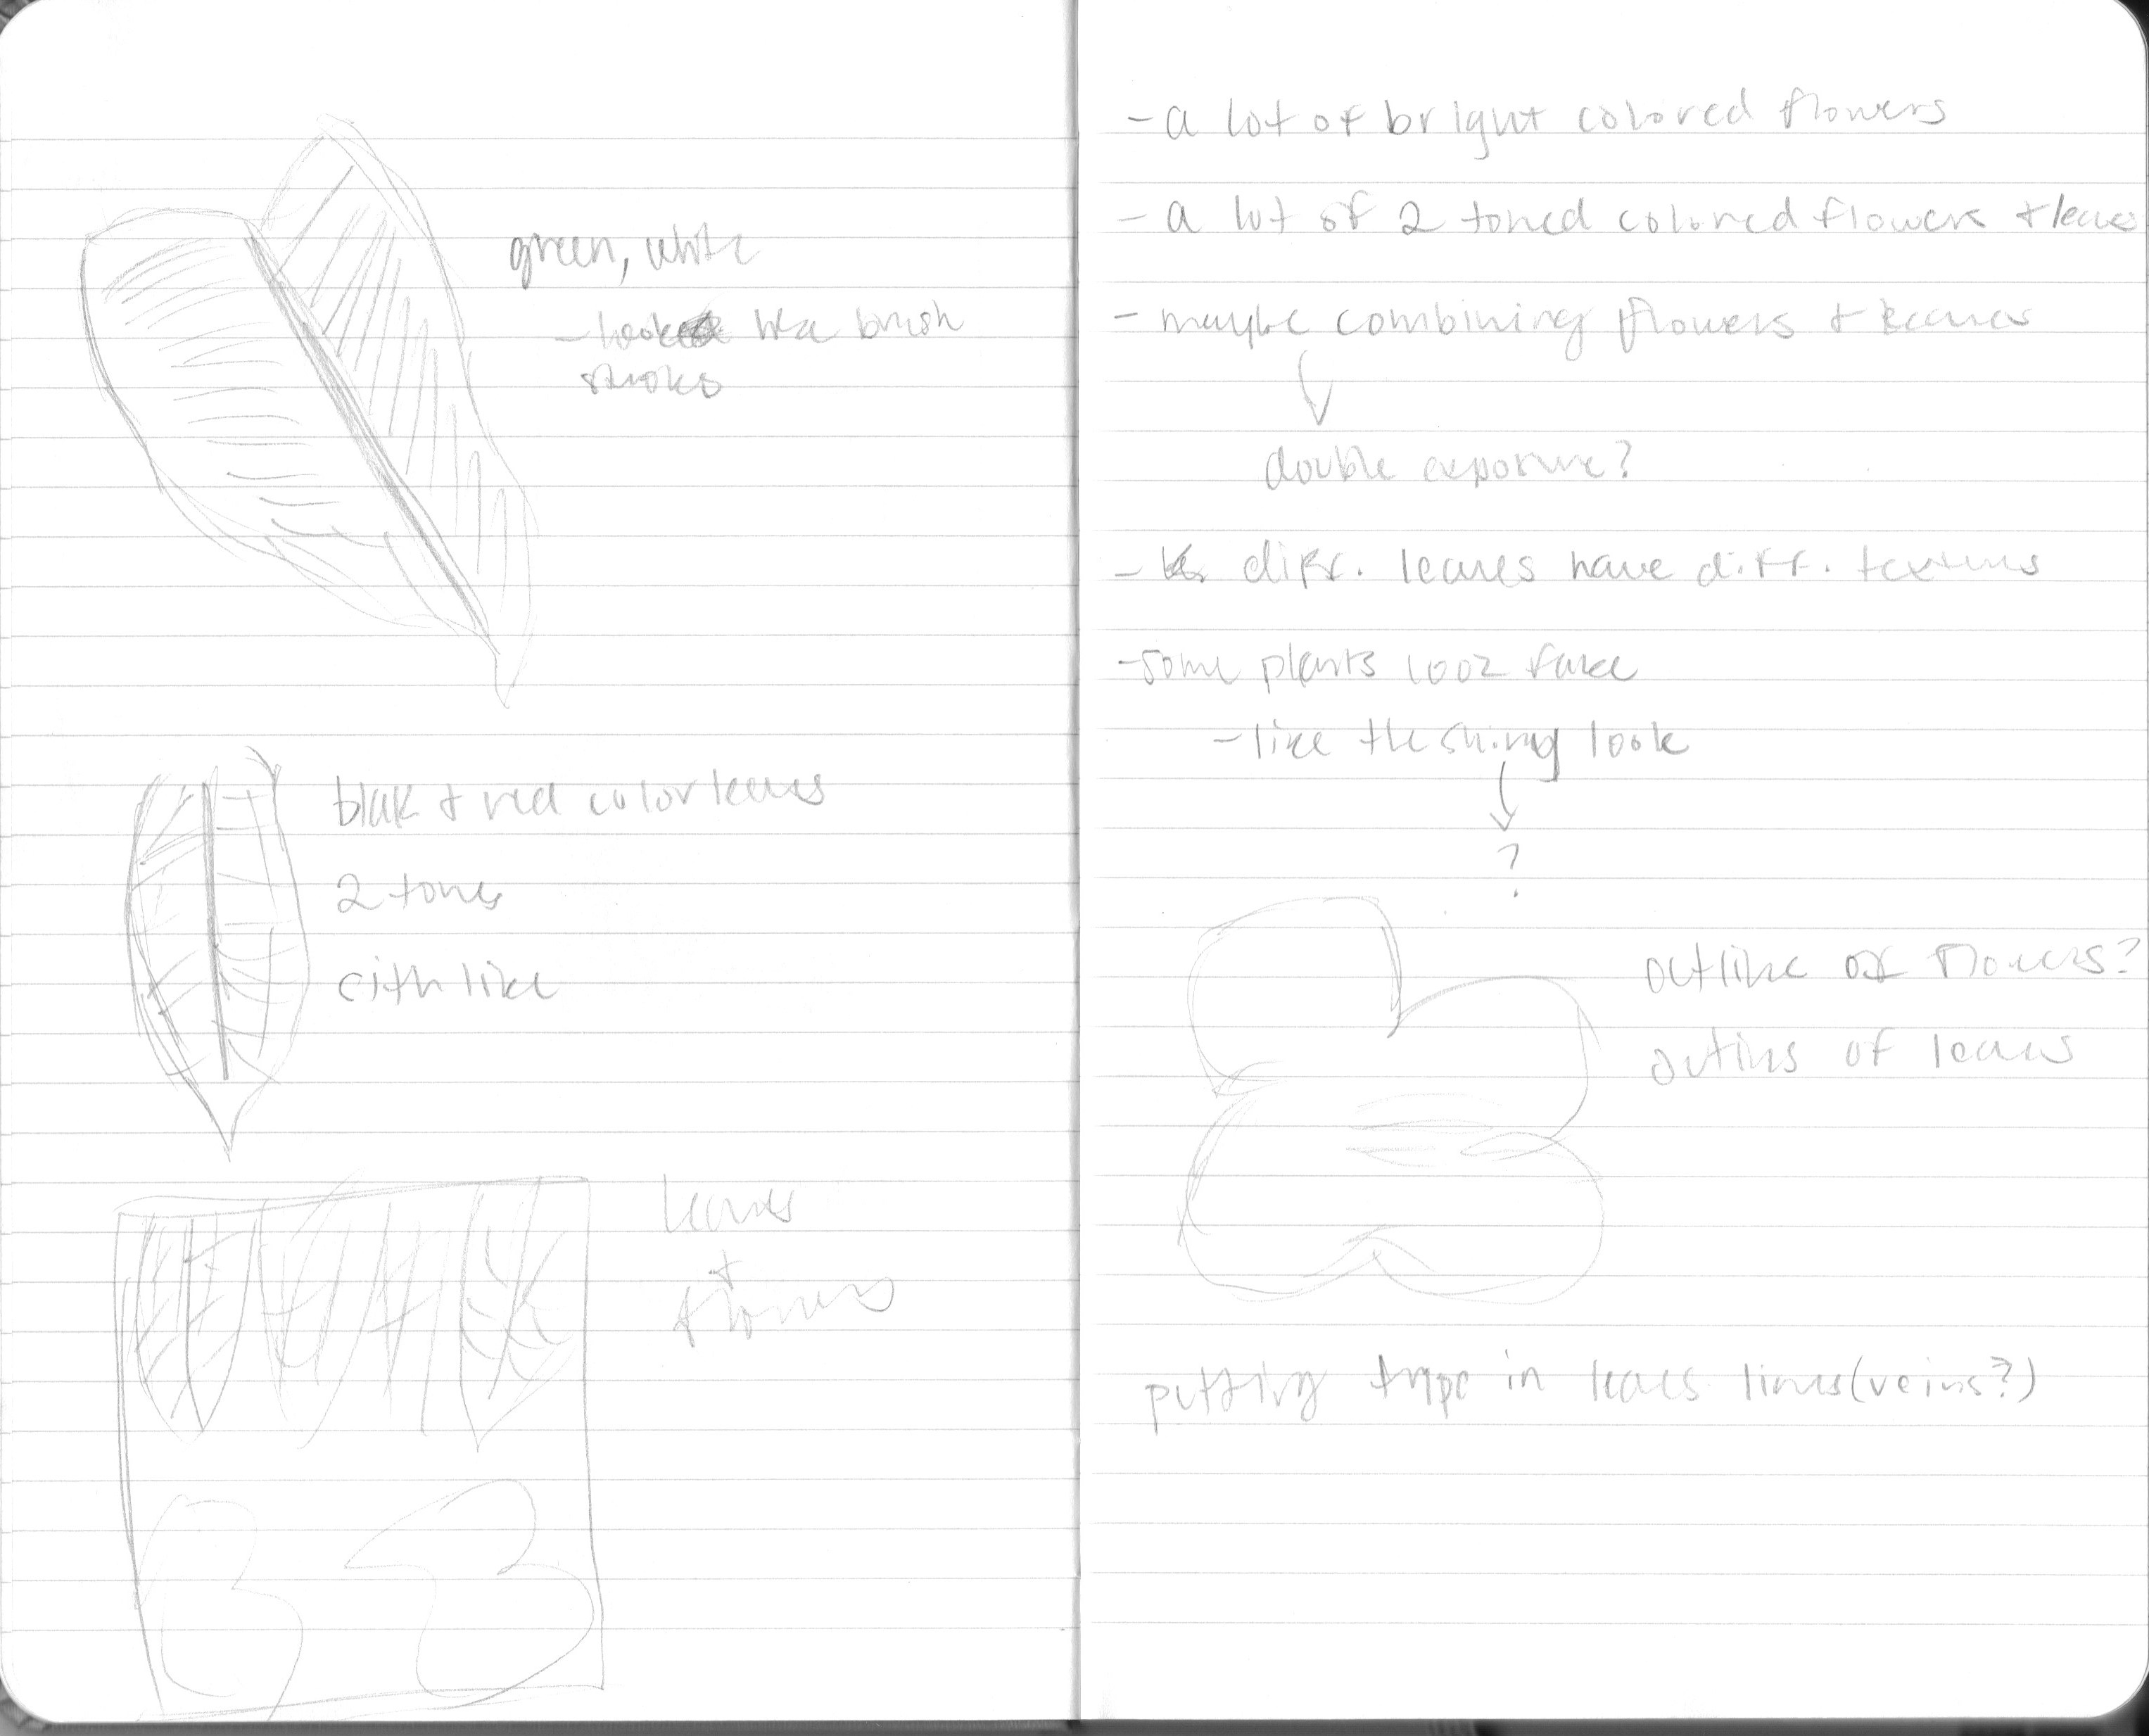 green, white
- look like brush
strokes
blak + red color leaves
2 tones
like
leaves
+
flowers
- a lot of bright colored flowers
- a lot of 2 toned colored flowers + leaves
- maybe combining flowers + leaves
double exposure?
- diff. leaves have diff. textures
- some plants look fake
- like the shiny look
?
outline of flowers?
outlins of leaves
putting type in leaves lines (veins?)